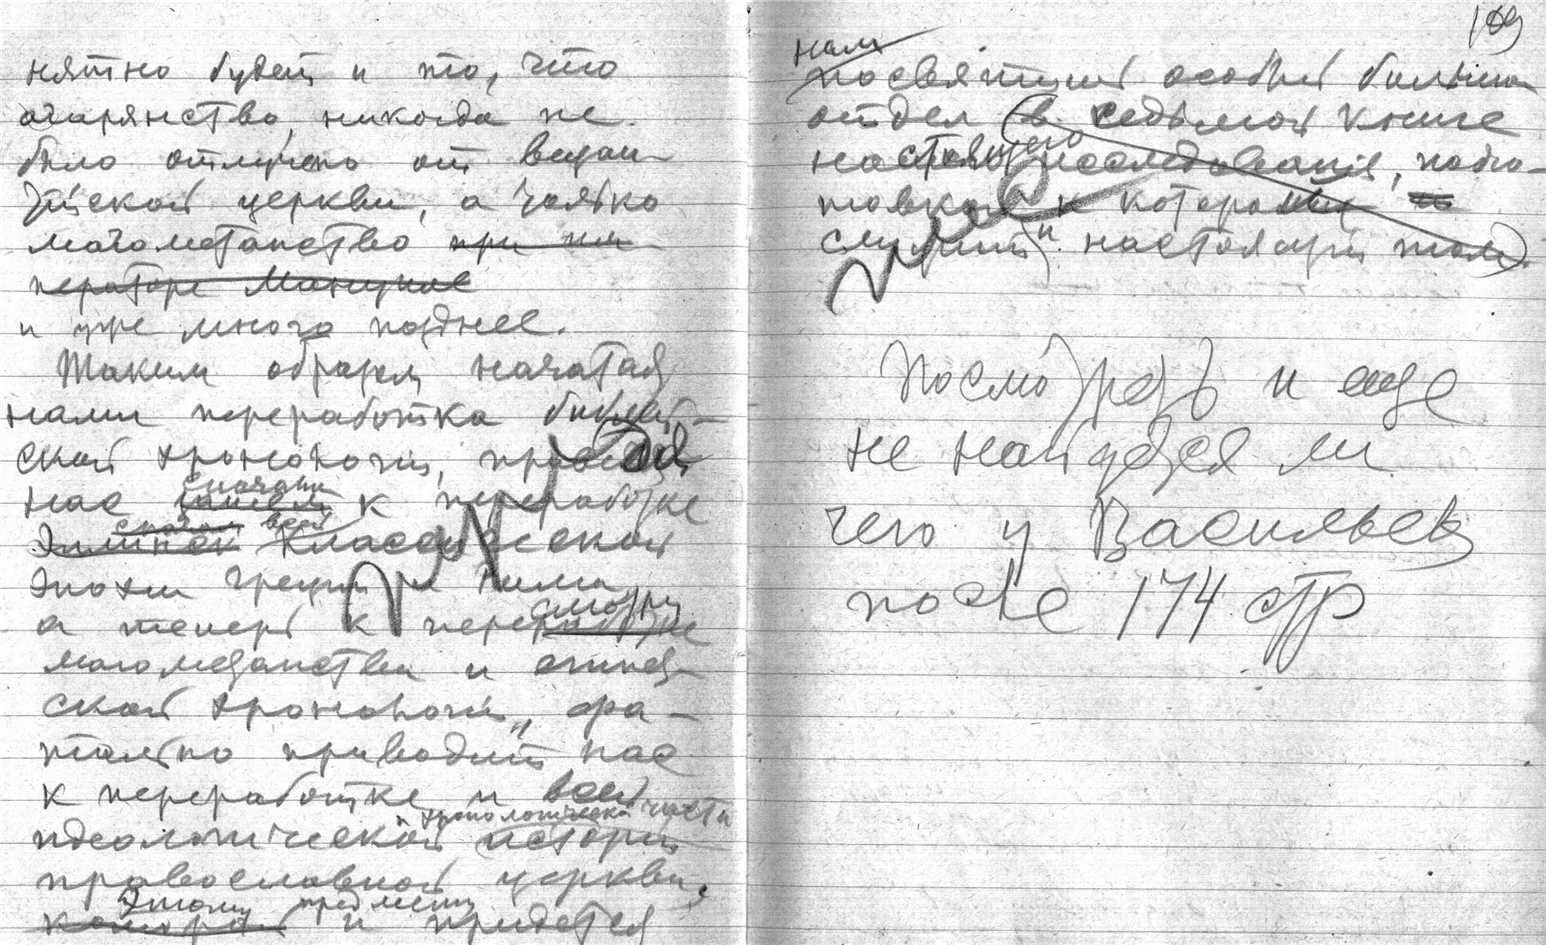 нятно будет и то, что
агарянство, никогда не
было отлучено от визан-
тийской церкви, а только
магометанство при им-
ператоре Мануиле
и уже много позднее.
Таким образом начатая
нами переработка библей-
ской хронологии,
нас сначала к переработке
всей классической
эпохи Греции и Рима,
а теперь к пересмотру
магометанства и египет-
ской хронологии, фа-
тально приводит нас
к переработке и всей
хронологической части
идеологической истории
православной церкви,
Этому предмету
и придется
109
нам
посвятить особый большой
отдел в седьмой книге
настоящего исследования, подго-
товкой к которой
служит и настоящий том.
Посмотреть и еще
не найдется ли
чего у Васильева
после 174 стр